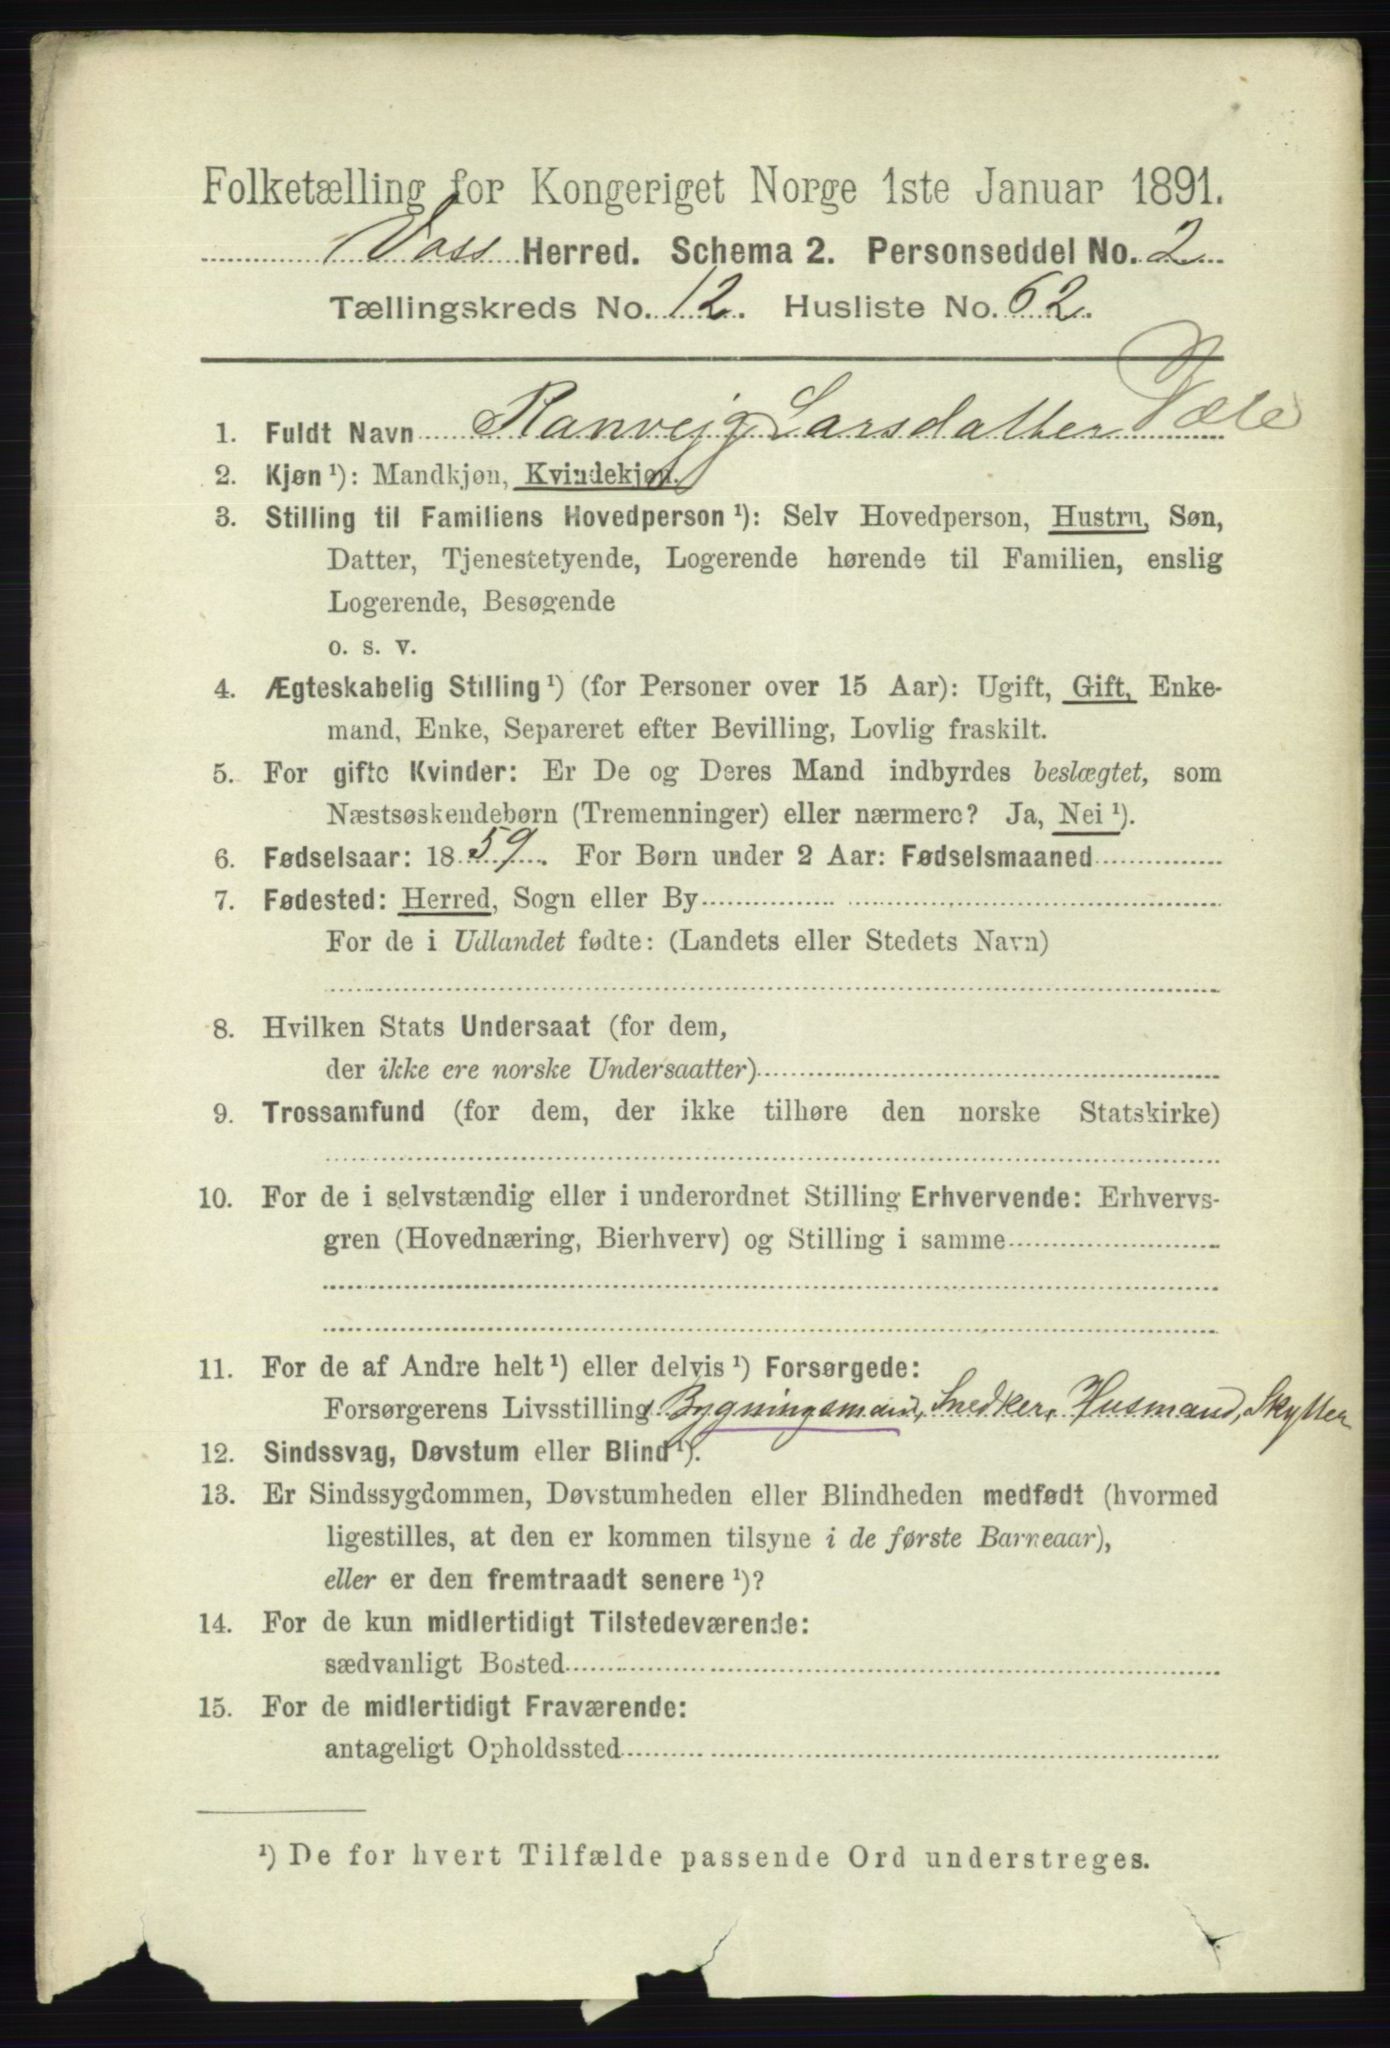 Folketælling for Kongeriget Norge 1ste Januar 1891.
Voss Herred. Schema 2. Personseddel No. 2
Tællingskreds No. 12. Husliste No. 62.
1. Fuldt Navn Ranveig Larsdatter Væle
2. Kjøn ¹): Mandkjøn, Kvindekjøn.
3. Stilling til Familiens Hovedperson ¹): Selv Hovedperson, Hustru, Søn,
Datter, Tjenestetyende, Logerende hørende til Familien, enslig
Logerende, Besøgende
o. s. v.
4. Ægteskabelig Stilling ¹) (for Personer over 15 Aar): Ugift, Gift, Enke-
mand, Enke, Separeret efter Bevilling, Lovlig fraskilt.
5. For gifte Kvinder: Er De og Deres Mand indbyrdes beslægtet, som
Næstsøskendebørn (Tremenninger) eller nærmere? Ja, Nei ¹).
6. Fødselsaar: 1859. For Børn under 2 Aar: Fødselsmaaned
7. Fødested: Herred, Sogn eller By
For de i Udlandet fødte: (Landets eller Stedets Navn)
8. Hvilken Stats Undersaat (for dem,
der ikke ere norske Undersaatter)
9. Trossamfund (for dem, der ikke tilhøre den norske Statskirke)
10. For de i selvstændig eller i underordnet Stilling Erhvervende: Erhvervs-
gren (Hovednæring, Bierhverv) og Stilling i samme
11. For de af Andre helt ¹) eller delvis ¹) Forsørgede:
Forsørgerens Livsstilling Bygningsmand, Snedker, Husmand, Skytter
12. Sindssvag, Døvstum eller Blind ¹).
13. Er Sindssygdommen, Døvstumheden eller Blindheden medfødt (hvormed
ligestilles, at den er kommen tilsyne i de første Barneaar),
eller er den fremtraadt senere ¹)?
14. For de kun midlertidigt Tilstedeværende:
sædvanligt Bosted
15. For de midlertidigt Fraværende:
antageligt Opholdssted
¹) De for hvert Tilfælde passende Ord understreges.